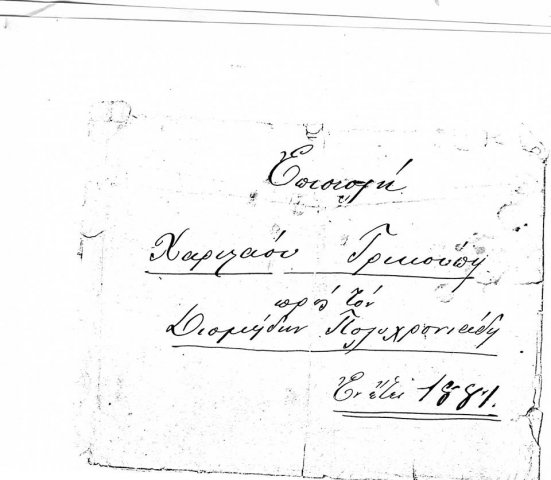 Επιστολή
Χαριλάου Τρικούπη
πρός τόν
Διομήδην Πολυχρονιάδη
Εν έτει 1881.